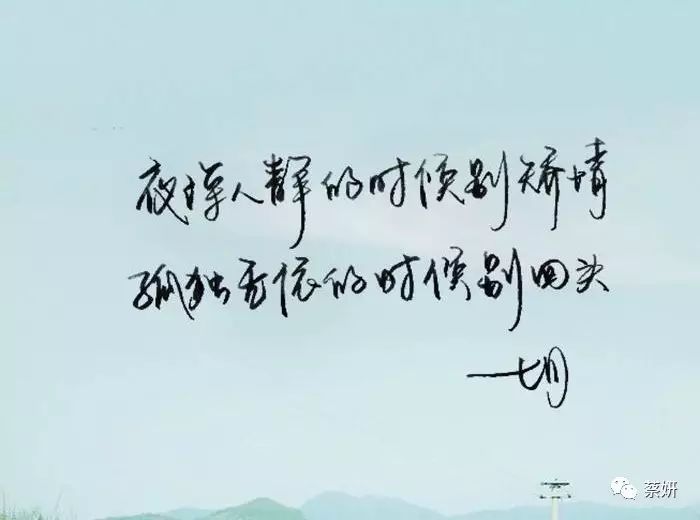 夜深人静的时候别矫情
孤独无依的时候别回头
一七月
蔡妍